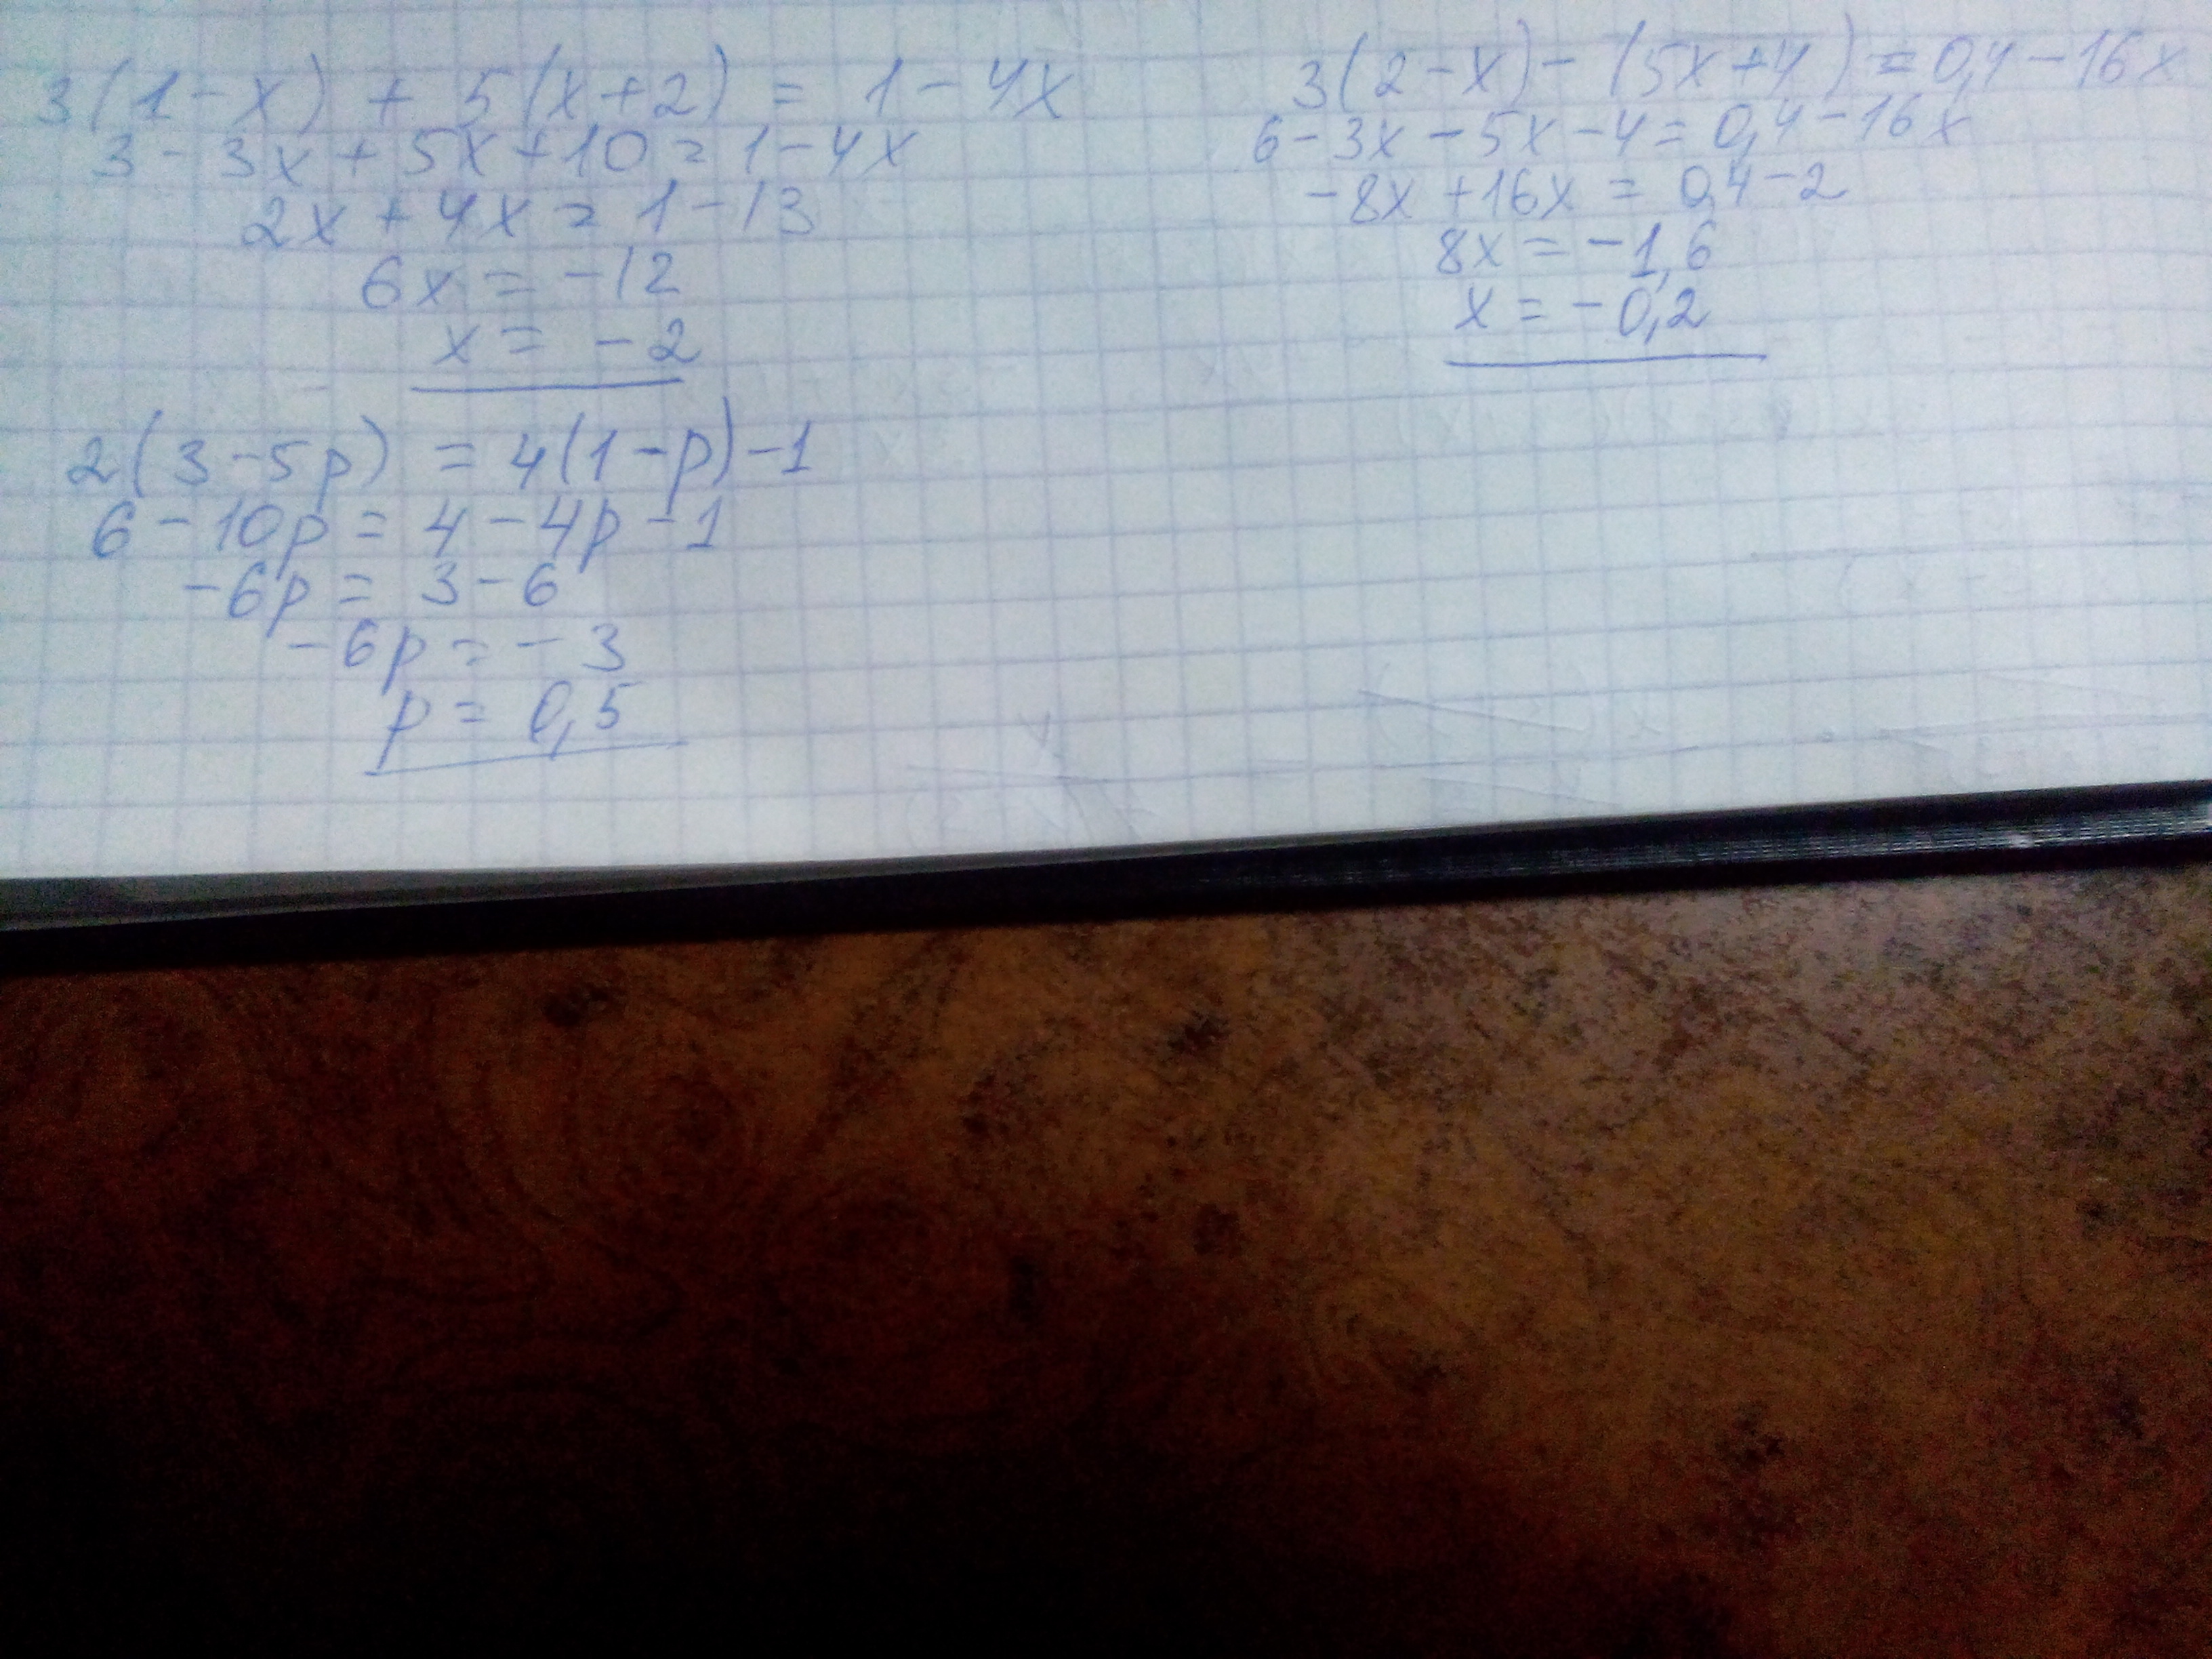 3(1-x) + 5(x+2) = 1-4x
3-3x+5x+10=1-4x
2x+4x=1-13
6x=-12
x=-2
2(3-5p) = 4(1-p)-1
6-10p=4-4p-1
-6p=3-6
-6p=-3
p=0,5
3(2-x)-(5x+4)=0,4-16x
6-3x-5x-4=0,4-16x
-8x+16x=0,4-2
8x=-1,6
x=-0,2